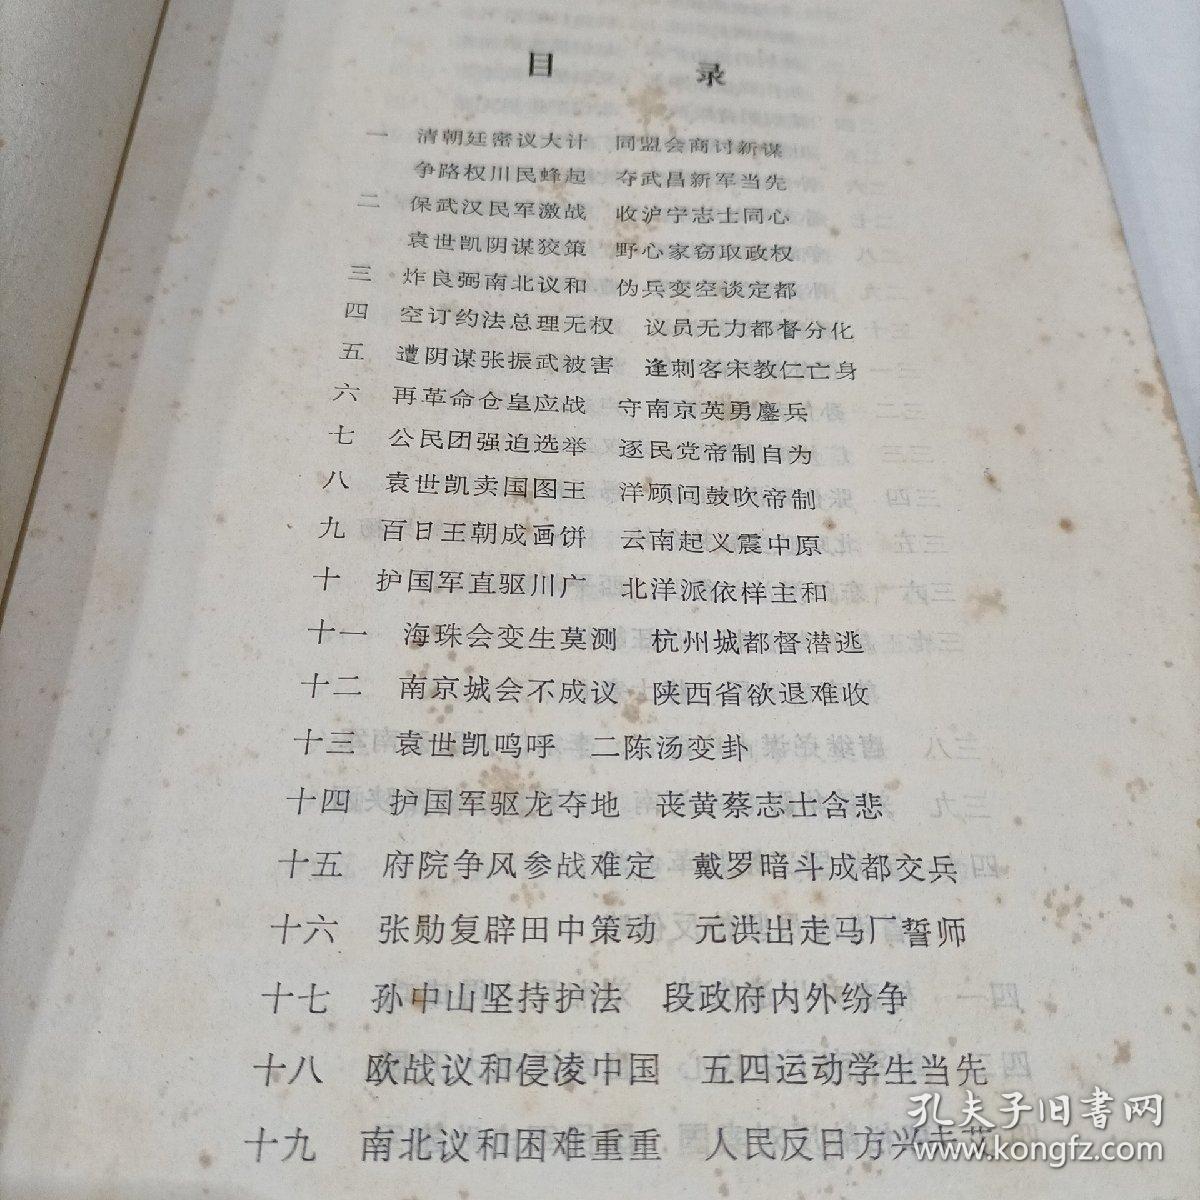 目 录
一 清朝廷密议大计 同盟会商讨新谋
争路权川民蜂起 夺武昌新军当先
二 保武汉民军激战 收沪宁志士同心
袁世凯阴谋狡策 野心家窃取政权
三 炸良弼南北议和 伪兵变空谈定都
四 空订约法总理无权 议员无力都督分化
五 遭阴谋张振武被害 逢刺客宋教仁亡身
六 再革命仓皇应战 守南京英勇鏖兵
七 公民团强迫选举 逐民党帝制自为
八 袁世凯卖国图王 洋顾问鼓吹帝制
九 百日王朝成画饼 云南起义震中原
十 护国军直驱川广 北洋派依样主和
十一 海珠会变生莫测 杭州城都督潜逃
十二 南京城会不成议 陕西省欲退难收
十三 袁世凯呜呼 二陈汤变卦
十四 护国军驱龙夺地 丧黄蔡志士含悲
十五 府院争风参战难定 戴罗暗斗成都交兵
十六 张勋复辟田中策动 元洪出走马厂誓师
十七 孙中山坚持护法 段政府内外纷争
十八 欧战议和侵凌中国 五四运动学生当先
十九 南北议和困难重重 人民反日方兴未艾
孔夫子旧书网
www.kongfz.com